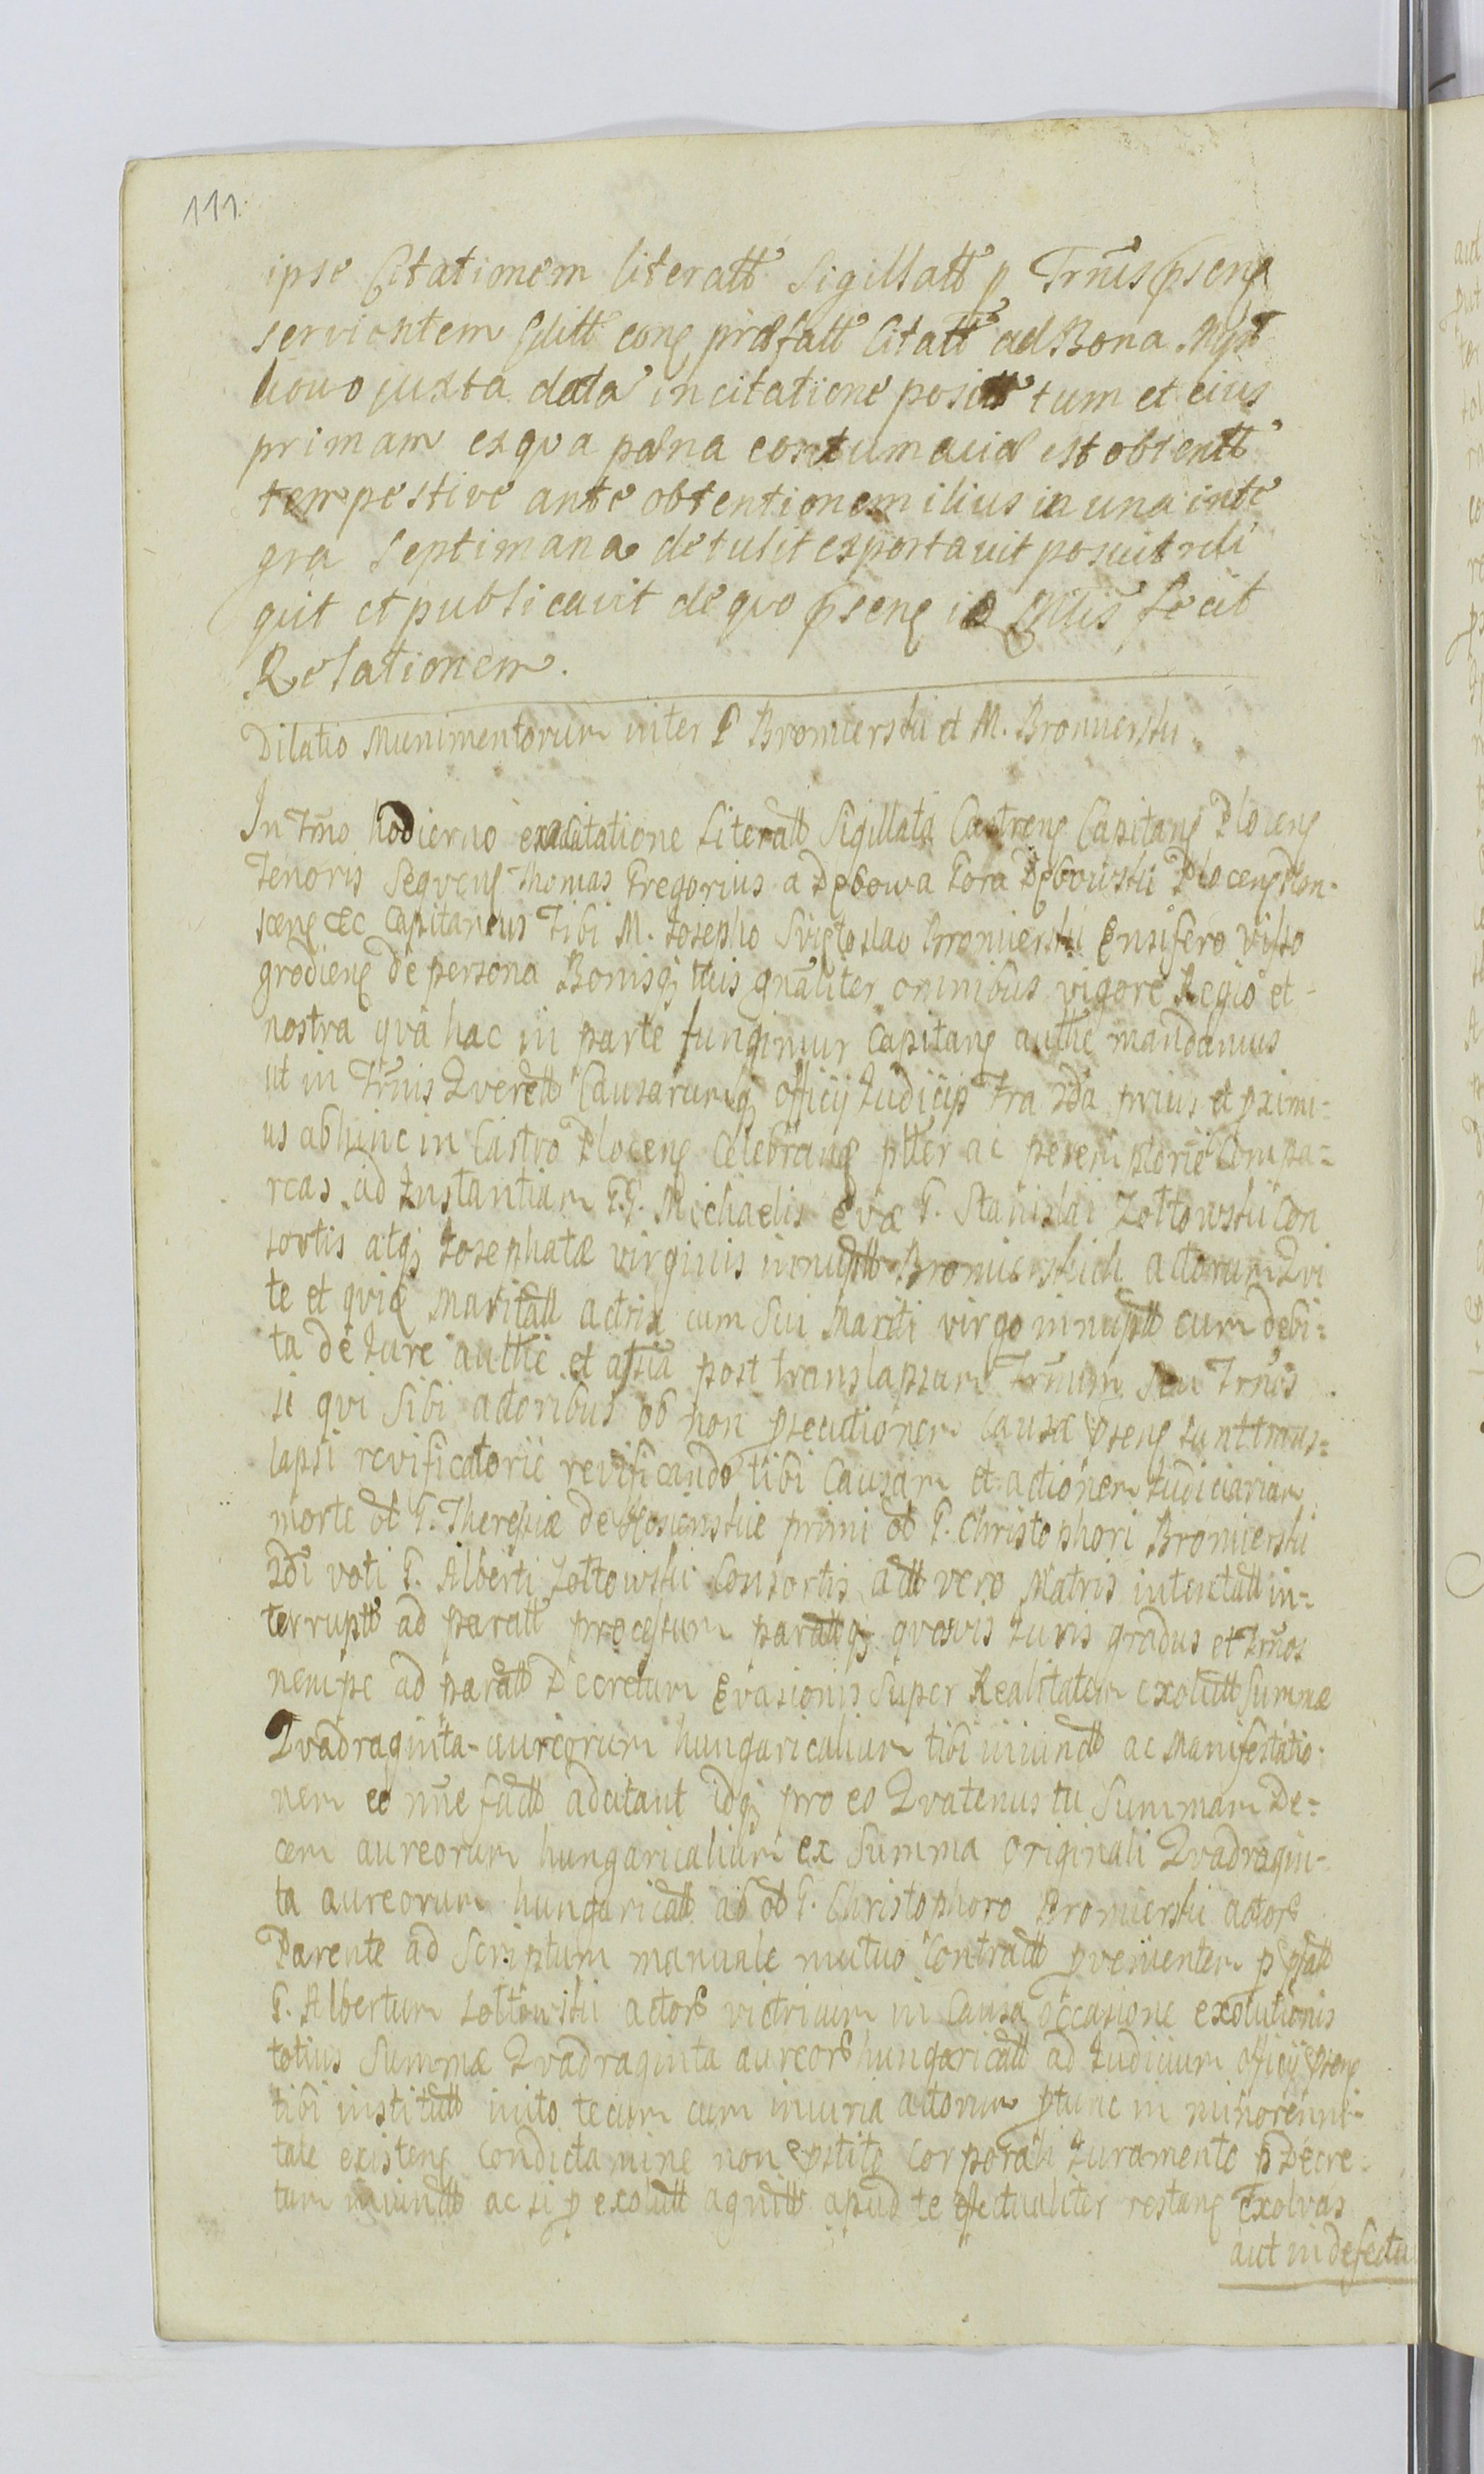 111.
ipse Citationem literatt Sigillatt p Trnis pseng
servientem editt cong præfatt Citatt ad Bona
juxta data in citatione positt tum et eius
primam ex qva pœna contumaciæ est obtentt
tempestive ante obtentionem illius in una inte
gra Septimana detulit exportavit posuit reli
quit et publicavit de qvo pseng in fecit
Relationem.
Dilatio Munimentorum inter G Bromierski et M. Bromierski.
In Trmo hodierno ex Citatione Literatt Sigillata Castreng Capitang Ploceng
Tenoris Seqveng Thomas Gregorius a Dębowa Gora Dębowski Ploceng Plon-
sceng &c Capitaneus Tibi M. Josepho Sviętoslao Bromierski Ensifero Visso
grodieng de persona Bonisqj tuis gnaliter omnibus vigore Regio et
nostra qva hac in parte fungimur Capitang authe mandamus
ut in Trnis Qverett Causarumqj officij Judicij fra 2da prius et pximi=
us abhinc in Castro Ploceng Celebrang pltter ac peremptorie Compa=
reas ad Instantiam G.G. Michaelis Evæ G. Stanislai Zoltowski Con
sortis atqj Josephatæ virginis innuptt Bromierskich actorum Qvi
te et qviæ maritatt actrix cum Sui Mariti virgo innuptt cum debi=
ta de Jure authe et astia post translapsum Trnum Seu Trnos
si qvi Sibi actoribus ob non psecutionem Causæ pseng sunt trans=
lapsi revificatorie revificando tibi Causam et actionem Judiciariam
morte ol G. Theresiæ de primi ol G. Christophori Bromierski
2di voti G. Alberti Zoltowski Consortis att vero Matris intentatt in=
terruptt ad paratt processum parattqj qvosvis Juris gradus et Trnos
nempe ad paratt Decretum Evasionis Super Realitatem exolutt Summæ
Qvadraginta aureorum hungaricalium tibi iniunctt ac Manifestatio-
nem eo nne factt adcitant idqj pro eo Qvatenus tu Summam De=
cem aureorum hungaricalium ex Summa Originali Qvadragin-
ta aureorum hungaricatt ab ol G. Christophoro Bromierski actors
Parente ad Scriptum manuale mutuo Contractt pvenientem p pfatt
G. Albertum Zoltowski actors victricum in Causa occasione exolutionis
totius Summæ Qvadraginta aureors hungaricatt ad Judicium officij pseng
tibi institutt inito tecum cum iniuria actorum ptunc in minorenni-
tate existeng Condictamine non pstito Corporali Juramento p Decre-
tum iniunctt ac si p exolutt agnitt apud te efectualiter restang Exolvas
aut in defectu